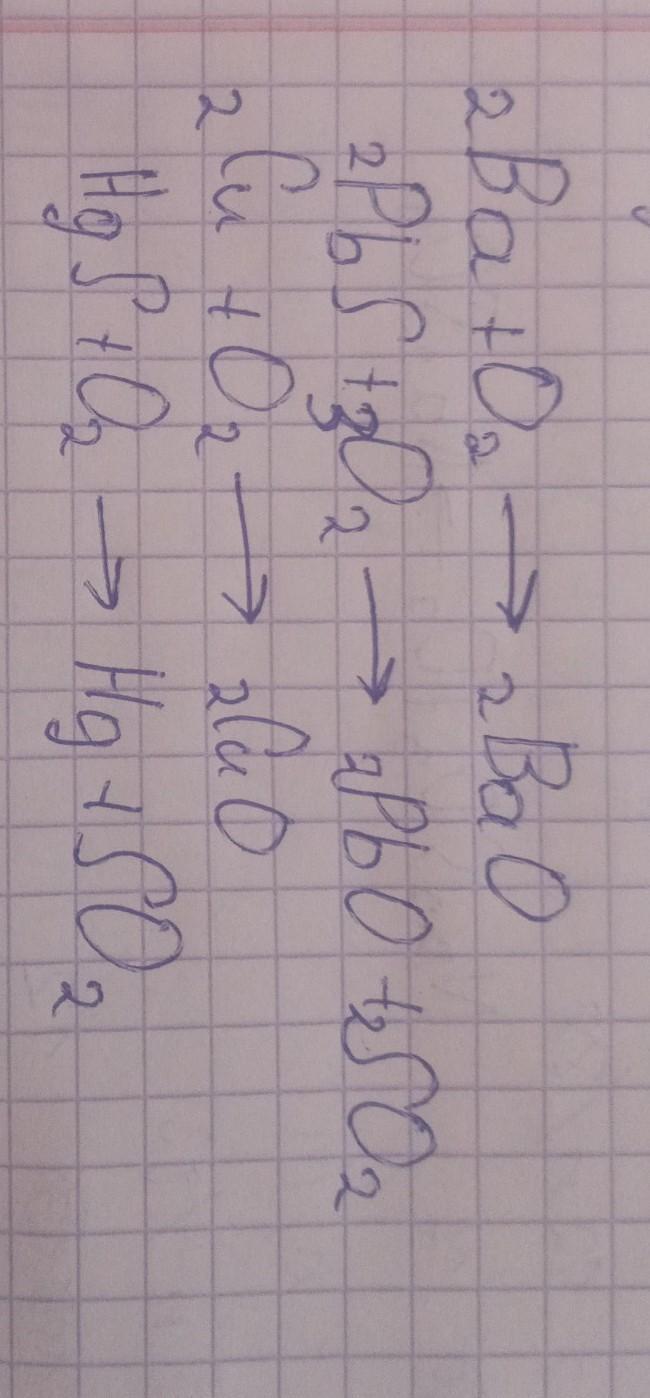 2Ba + O₂ → 2BaO
2PbS + 3O₂ → 2PbO + 2SO₂
2Cu + O₂ → 2CuO
HgS + O₂ → Hg + SO₂